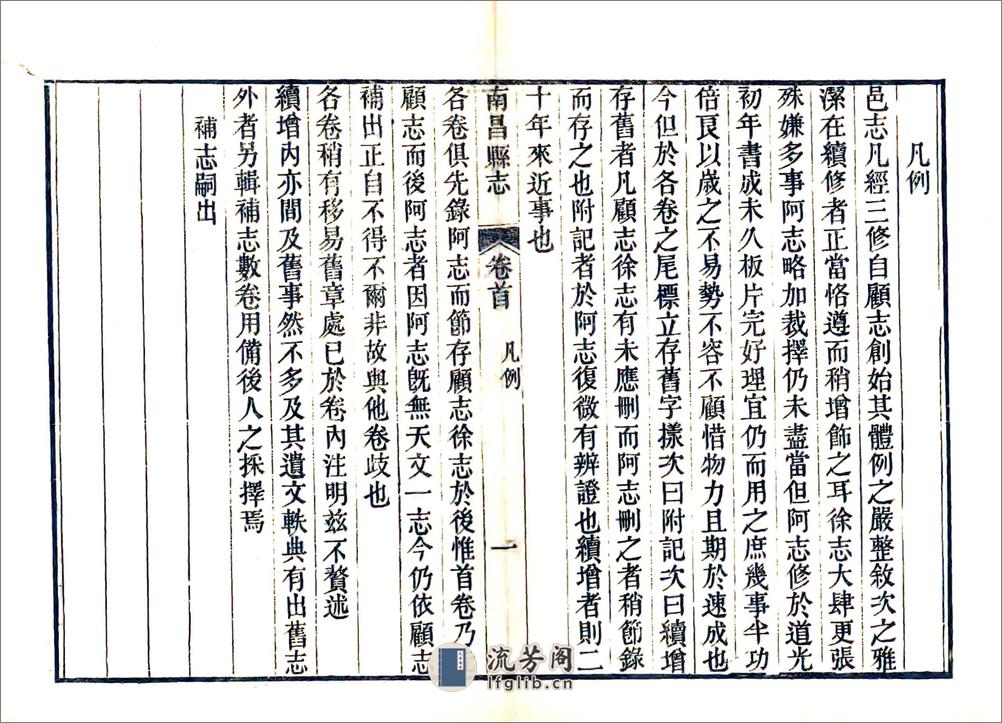 凡例
邑志凡經三修自顧志創始其體例之嚴整敘次之雅
潔在續修者正當恪遵而稍增飾之耳徐志大肆更張
殊嫌多事阿志略加裁擇仍未盡當但阿志修於道光
初年書成未久板片完好理宜仍而用之庶幾事半功
倍良以歲之不易勢不容不顧惜物力且期於速成也
今但於各卷之尾標立存舊字樣次曰附記次曰續增
存舊者凡顧志徐志有未應刪而阿志刪之者稍節錄
而存之也附記者於阿志復微有辨證也續增者則二
十年來近事也
南昌縣志 卷首 凡例 一
各卷俱先錄阿志而節存顧志徐志於後惟首卷乃先
顧志而後阿志者因阿志旣無天文一志今仍依顧志
補出正自不得不爾非故與他卷歧也
各卷稍有移易舊章處已於卷內注明兹不贅述
續增內亦間及舊事然不多及其遺文軼典有出舊志
外者另輯補志數卷用備後人之採擇焉
補志嗣出
流芳阁
lfglib.cn